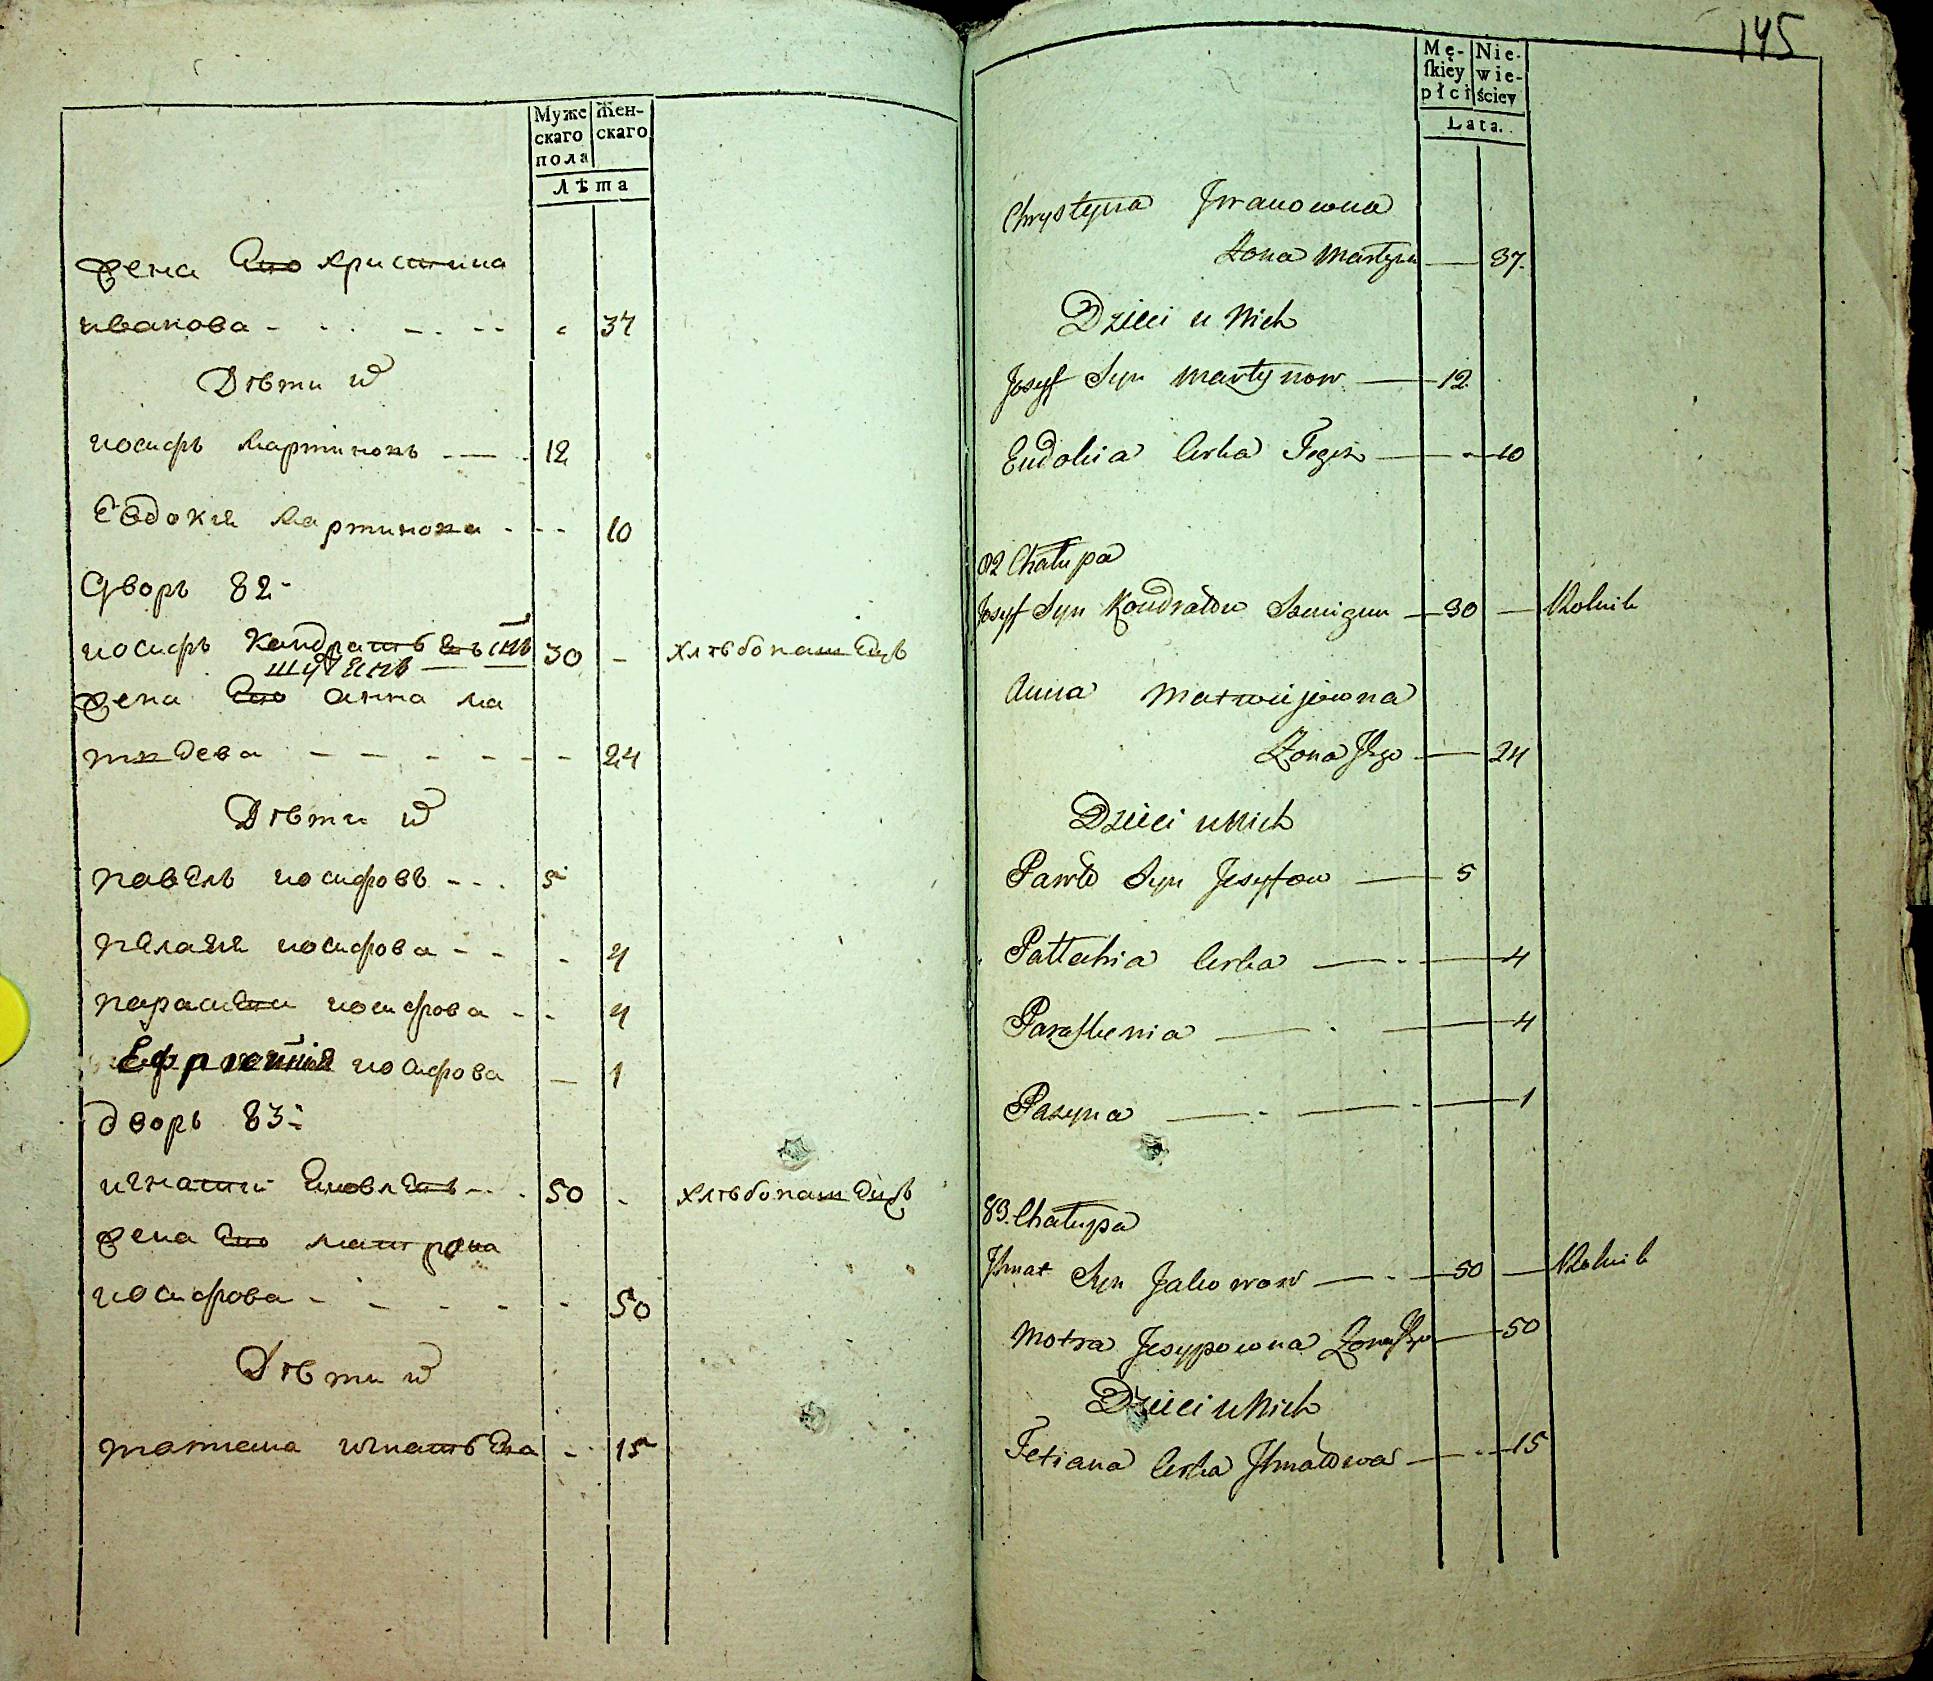 Муже скаго пола
Женскаго
Лѣта
жена Его христина
иванова - - - - - 37
Дѣти и
иосифъ мартиновъ - - 12
Евдокия мартинова - - - 10
Дворъ 82
иосифъ кондратьевъ снъ 30 - хлѣбопашецъ
жена Его анна ма
твеева - - - - - - 24
Дѣти и
павелъ иосифовъ - - - 5
пелагия иосифова - - - 4
параскеви иосифова - - 4
иосифова - 1
дворъ 83
игнатий яковлевъ - - 50 - хлѣбопашецъ
жена Его матрона
иосифова - - - - - 50
Дѣти и
татиана игнатьева - 15
145
Mę-skiey płci
Nie-wie-ściey
Lata.
Chrystyna Jwanowna
Żona Martyna — 37.
Dzieci u Nich
Josyf Syn Martynow — 12
Eudokia Corka Tegoż — 10
82 Chałupa
Josyf Syn Kondratów — 30 — Rolnik
Anna Matwiijowna
Żona Jego — 24
Dzieci u Nich
Pawło Syn Josyfow — 5
Pałłahia Corka — 4
Paraskenia — 4
— 1
83. Chałupa
Jhnat Syn Jakowow — 50 — Rolnik
Motra Jesypowna Żona Jego — 50
Dzieci u Nich
Tetiana Corka Jhnatowa — 15